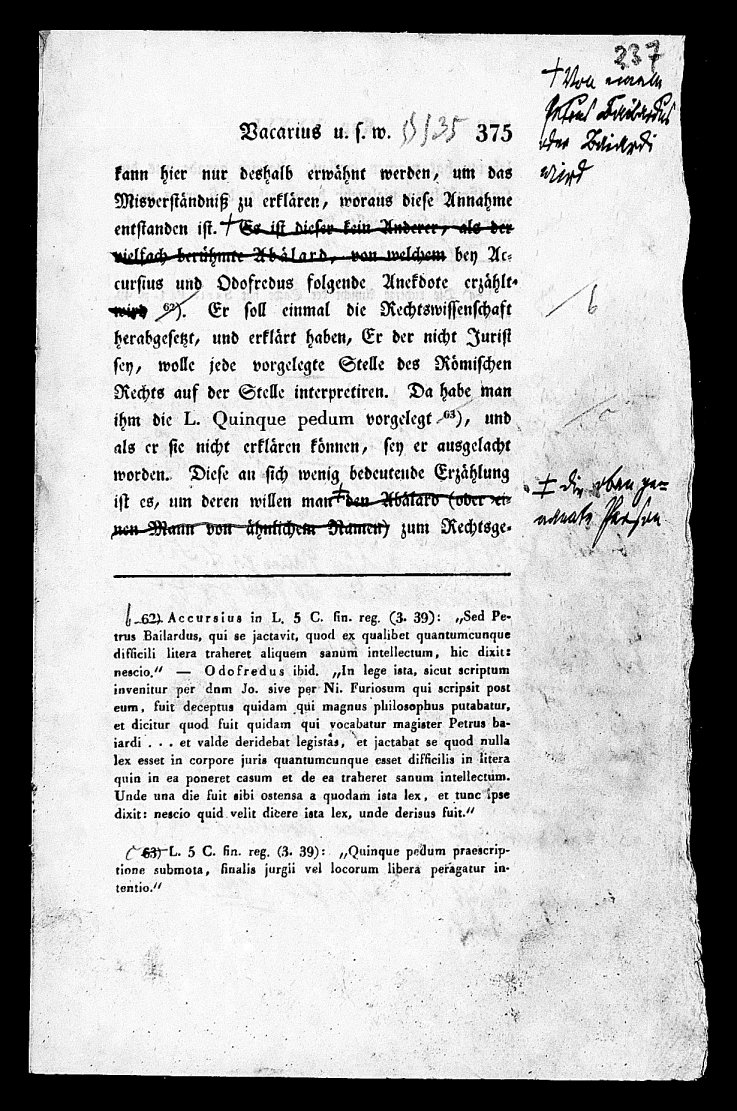 237
† Von einem
Petrus Bailardus
oder Baiardi
wird
Vacarius u. s. w. 135 375
kann hier nur deshalb erwähnt werden, um das
Misverständniß zu erklären, woraus diese Annahme
entstanden ist. † Es ist dieser kein Anderer, als der
vielfach berühmte Abälard, von welchem bey Ac-
cursius und Odofredus folgende Anekdote erzählt
wird 62). Er soll einmal die Rechtswissenschaft
b
herabgesetzt, und erklärt haben, Er der nicht Jurist
sey, wolle jede vorgelegte Stelle des Römischen
Rechts auf der Stelle interpretiren. Da habe man
ihm die L. Quinque pedum vorgelegt 63), und
als er sie nicht erklären können, sey er ausgelacht
worden. Diese an sich wenig bedeutende Erzählung
ist es, um deren willen man ‡ den Abälard (oder ei-
nen Mann von ähnlichem Namen) zum Rechtsge-
‡ die oben ge-
nannte Person
b 62) Accursius in L. 5 C. fin. reg. (3. 39): „Sed Pe-
trus Bailardus, qui se jactavit, quod ex qualibet quantumcunque
difficili litera traheret aliquem sanum intellectum, hic dixit:
nescio.“ — Odofredus ibid. „In lege ista, sicut scriptum
invenitur per dnm Jo. sive per Ni. Furiosum qui scripsit post
eum, fuit deceptus quidam qui magnus philosophus putabatur,
et dicitur quod fuit quidam qui vocabatur magister Petrus ba-
iardi . . . et valde deridebat legistas, et jactabat se quod nulla
lex esset in corpore juris quantumcunque esset difficilis in litera
quin in ea poneret casum et de ea traheret sanum intellectum.
Unde una die fuit sibi ostensa a quodam ista lex, et tunc ipse
dixit: nescio quid velit dicere ista lex, unde derisus fuit.“
c 63) L. 5 C. fin. reg. (3. 39): „Quinque pedum praescrip-
tione submota, finalis jurgii vel locorum libera peragatur in-
tentio.“